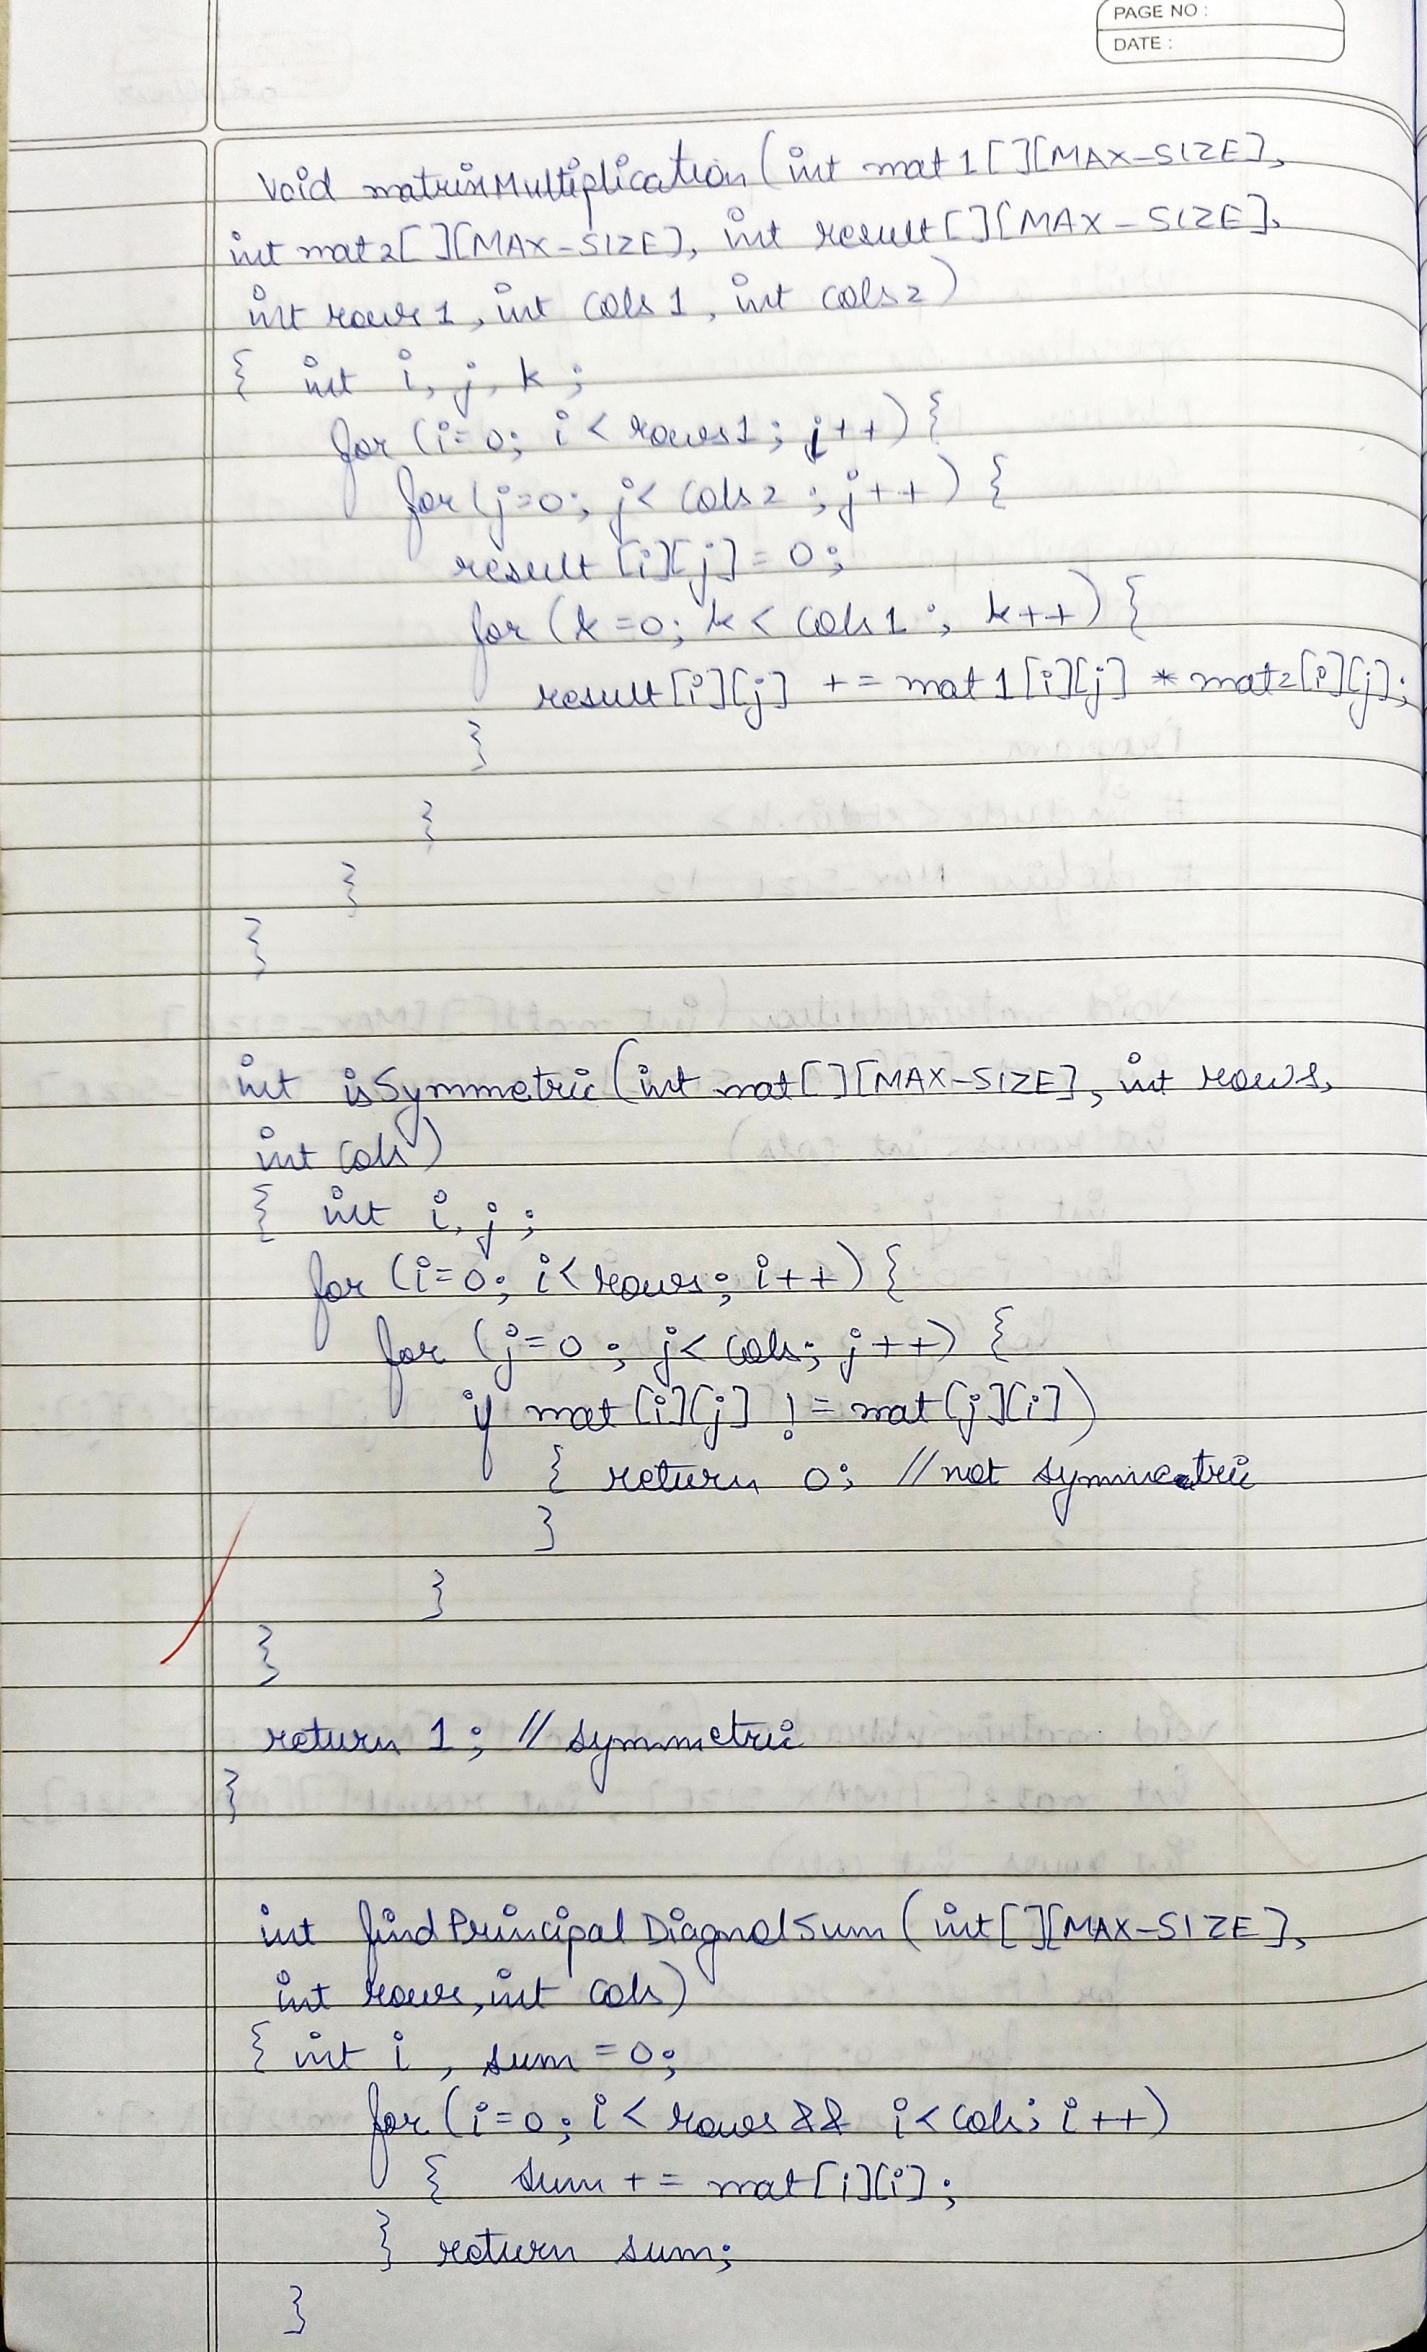 PAGE NO :
DATE :
Void matrixMultiplication (int mat 1 [ ][MAX-SIZE],
int mat 2[ ][MAX-SIZE], int result [ ][MAX-SIZE],
int rows 1, int cols 1, int cols 2)
{ int i, j, k ;
for (i=0; i < rows1 ; i++) {
for (j=0; j< cols 2 ; j++) {
result [i][j] = 0;
for (k =0; k < cols 1 ; k++) {
result [i][j] += mat 1 [i][j] * mat2[i][j];
}
}
}
}
int isSymmetric (int mat[ ][MAX-SIZE], int rows,
int cols)
{ int i, j ;
for (i=0; i< rows; i++) {
for (j=0 ; j< cols; j++) {
if mat [i][j] != mat [j][i])
{ return 0; // not symmetric
}
}
}
return 1 ; // symmetric
}
int findPrincipalDiagnolSum (int[ ][MAX-SIZE],
int rows, int cols)
{ int i , sum = 0;
for (i=0; i < rows && i< cols; i++)
{ sum += mat [i][i];
} return sum;
}